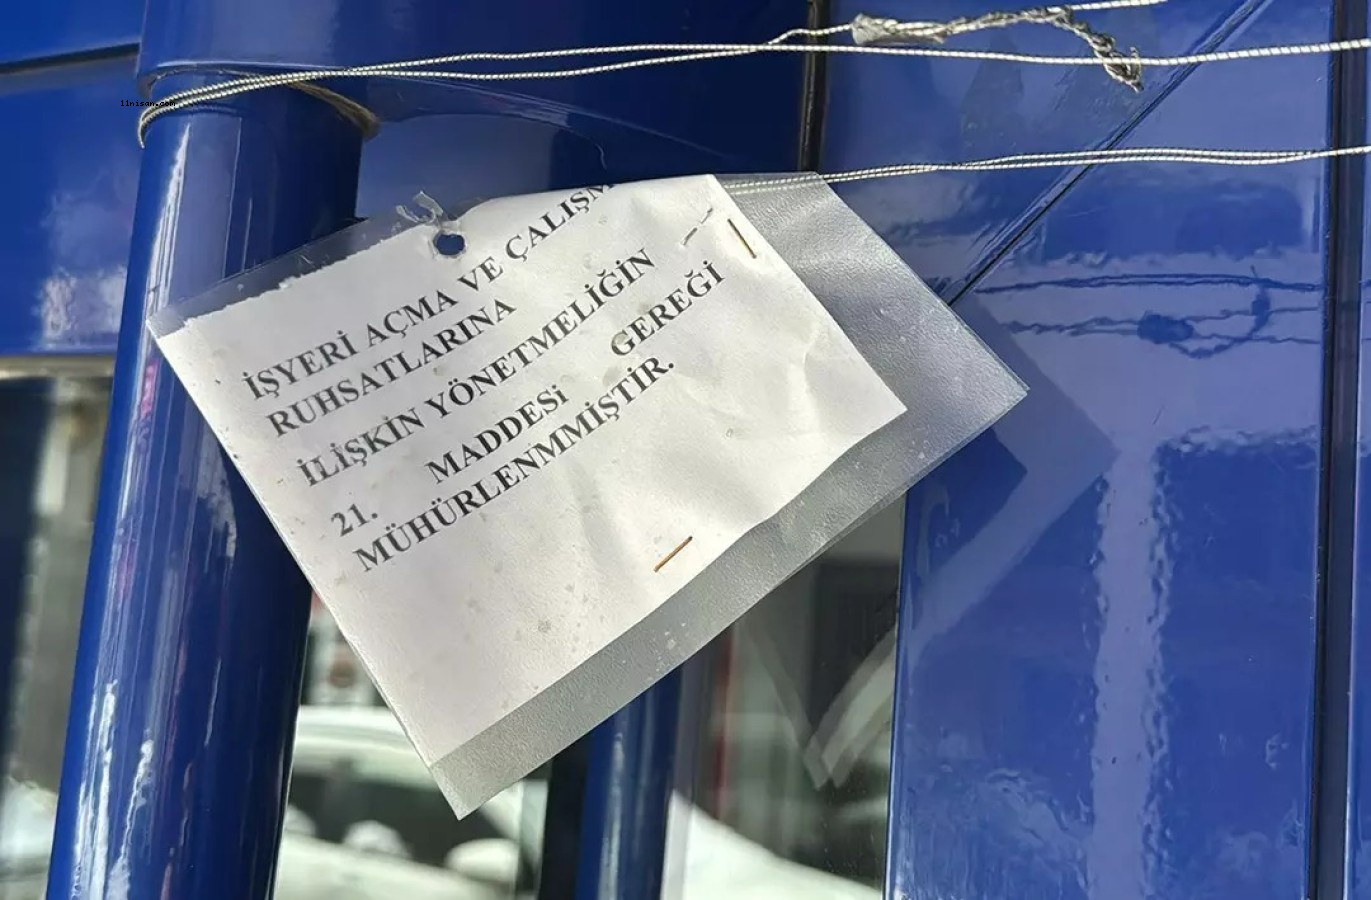 11nisan.com
İŞYERİ AÇMA VE ÇALIŞM
RUHSATLARINA
İLİŞKİN YÖNETMELİĞİN
21. MADDESi GEREĞİ
MÜHÜRLENMMİŞTİR.